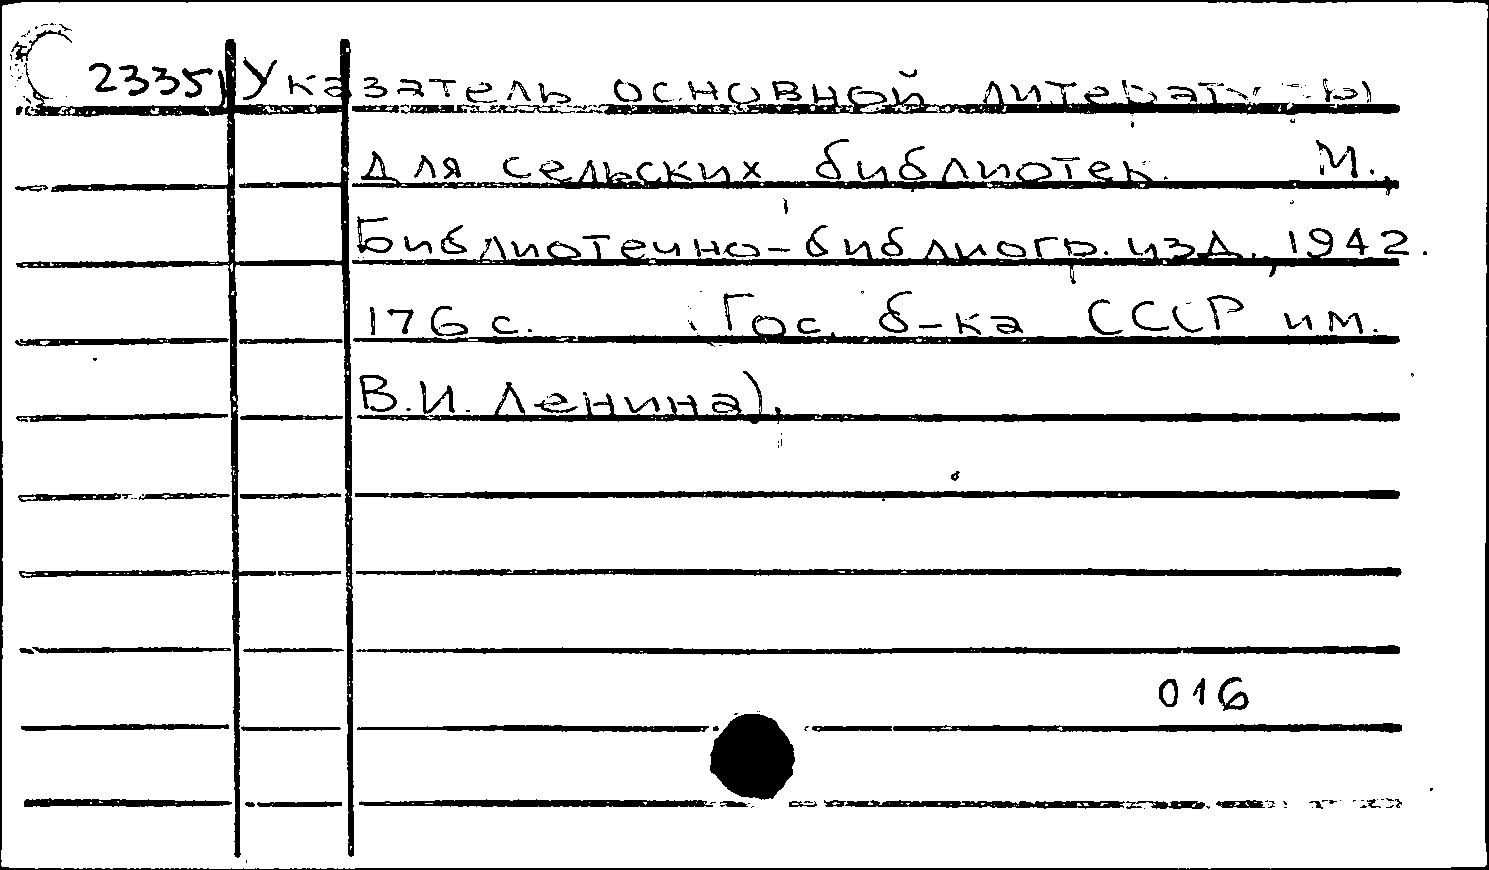 23351 Указатель основной литературы
для сельских библиотек. М.,
Библиотечно-библиогр. изд., 1942.
176 с. (Гос. б-ка СССР им.
В.И. Ленина).
016